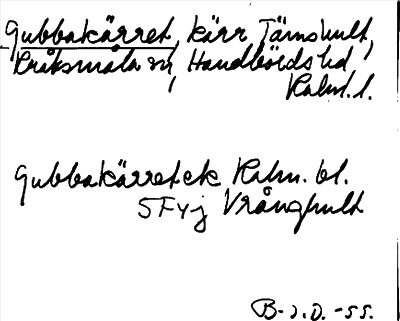 Gubbakärret, kärr Tärnshult,
Bråksmåla sn, Handbörds hd
Kalm. l.
Gubbakärret ek Kalm. bl.
5F4j Vrånghult
B-j.D.-55.